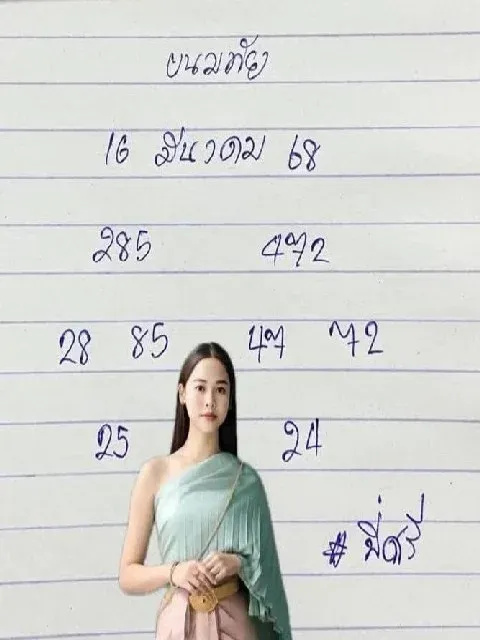 16 มีนาคม 68
285 472
28 85 47 72
25 24
# พี่ศรี